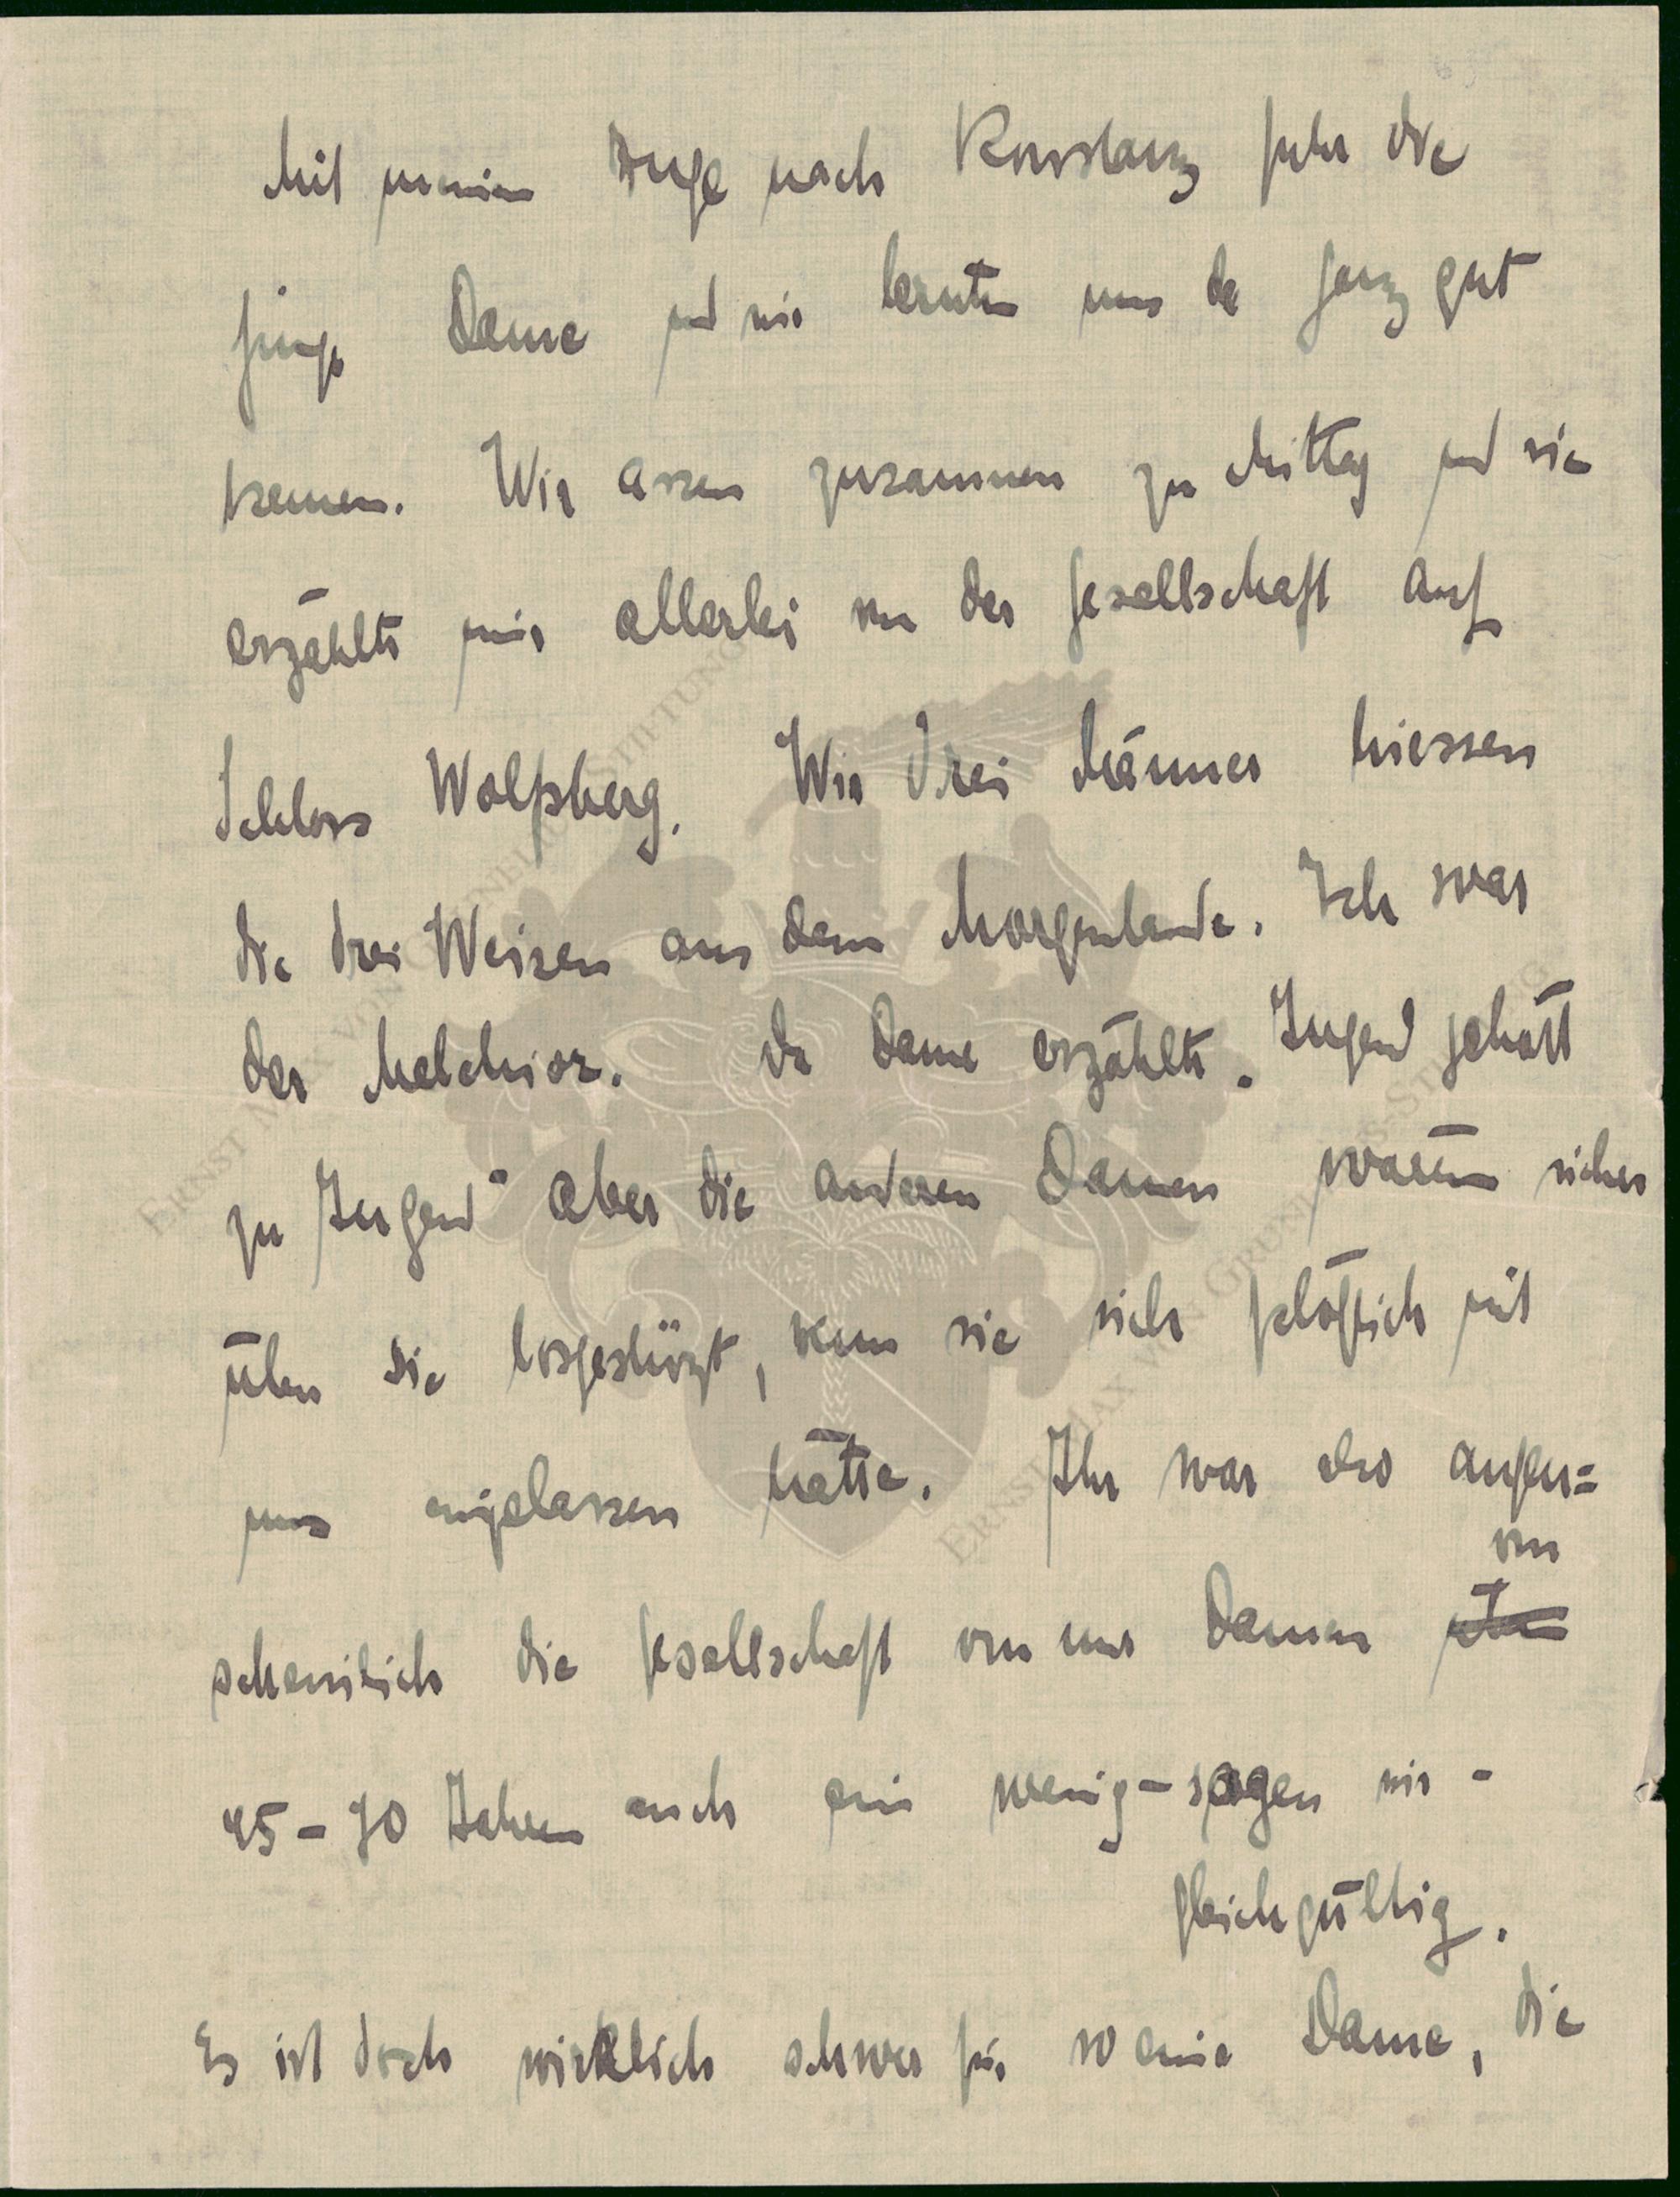 Mit meinem Zuge nach Konstanz fuhr die
junge Dame und wir lernten uns da ganz gut
kennen. Wir assen zusammen zu Mittag und sie
erzählte mir allerlei von der Gesellschaft auf
Schloss Wolfsberg. Wir drei Männer hiessen
die drei Weisen aus dem Morgenlande. Ich war
der Melchior. Die Dame erzählte „Jugend gehört
zu Jugend" aber die anderen Damen wären sicher
über sie losgestürzt, wenn sie sich plötzlich mit
uns eingelassen hätte. Ihr war also augen=
von
scheinlich die Gesellschaft von nur Damen
45-70 Jahren auch ein wenig - sagen wir -
gleichgültig.
Es ist doch wirklich schwer für so eine Dame, die
ERNST MAX VON GRUNELIUS-STIFTUNG
ERNST MAX VON GRUNELIUS-STIFTUNG